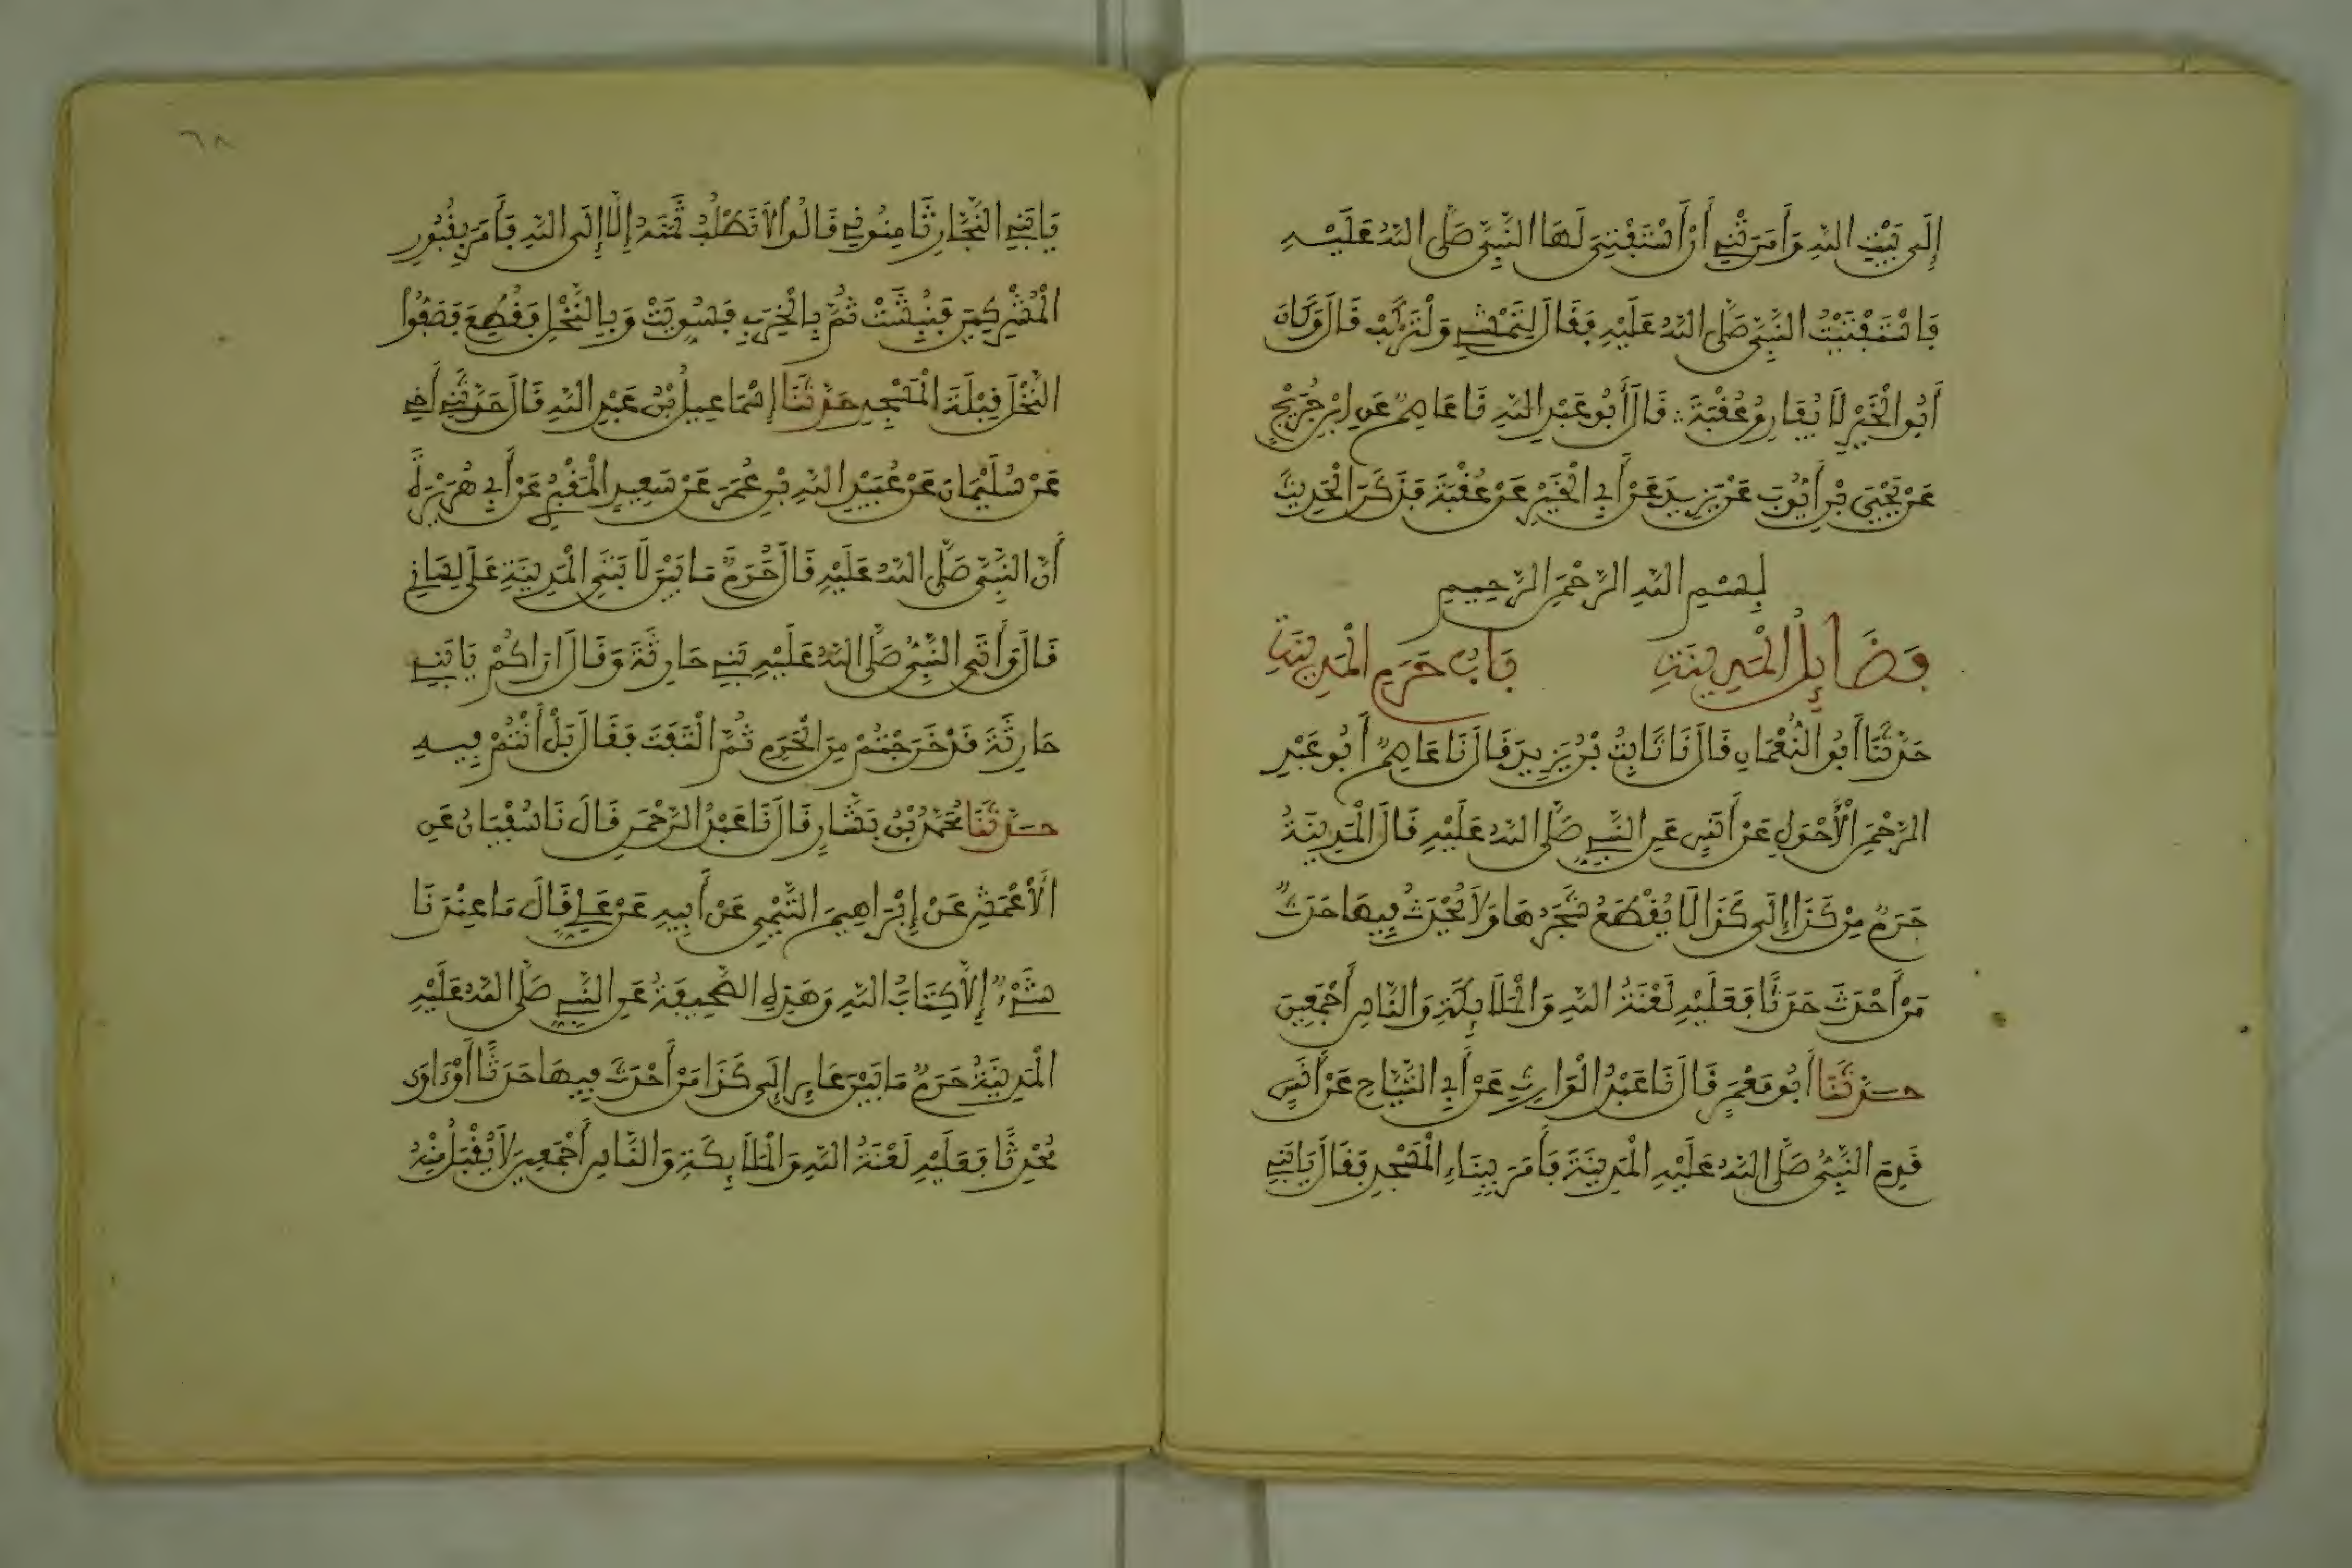 إِلَى بَيْتِ اللَّهِ وَأَمَرَتْنِي أَنْ أَسْتَفْتِيَ لَهَا النَّبِيَّ صَلَّى اللَّهُ عَلَيْهِ
فَاسْتَفْتَيْتُ النَّبِيَّ صَلَّى اللَّهُ عَلَيْهِ فَقَالَ لِتَمْشِي وَلْتَرْكَبْ قَالَ وَكَانَ
أَبُو الْخَيْرِ لَا يُفَارِقُ عُقْبَةَ ∴ قَالَ أَبُو عَبْدِ اللَّهِ نَا عَاصِمٌ عَنِ ابْنِ جُرَيْجٍ
عَنْ يَحْيَى بْنِ أَيُّوبَ عَنْ يَزِيدَ عَنْ أَبِي الْخَيْرِ عَنْ عُقْبَةَ فَذَكَرَ الْحَدِيثَ
بِسْمِ اللَّهِ الرَّحْمَنِ الرَّحِيمِ
فَضَائِلُ الْمَدِينَةِ بَابُ حَرَمِ الْمَدِينَةِ
حَدَّثَنَا أَبُو النُّعْمَانِ قَالَ نَا ثَابِتُ بْنُ يَزِيدَ قَالَ نَا عَاصِمٌ أَبُو عَبْدِ
الرَّحْمَنِ الْأَحْوَلِ عَنْ أَنَسٍ عَنِ النَّبِيِّ صَلَّى اللَّهُ عَلَيْهِ قَالَ الْمَدِينَةُ
حَرَمٌ مِنْ كَذَا إِلَى كَذَا لَا يُقْطَعُ شَجَرُهَا وَلَا يُحْدَثُ فِيهَا حَدَثٌ
مَنْ أَحْدَثَ حَدَثًا فَعَلَيْهِ لَعْنَةُ اللَّهِ وَالْمَلَائِكَةِ وَالنَّاسِ أَجْمَعِينَ
حَدَّثَنَا أَبُو مَعْمَرٍ قَالَ نَا عَبْدُ الْوَارِثِ عَنْ أَبِي التَّيَّاحِ عَنْ أَنَسٍ
قَدِمَ النَّبِيُّ صَلَّى اللَّهُ عَلَيْهِ الْمَدِينَةَ فَأَمَرَ بِبِنَاءِ الْمَسْجِدِ فَقَالَ يَا بَنِي
٦٨
يَا بَنِي النَّجَّارِ ثَامِنُونِي قَالُوا لَا نَطْلُبُ ثَمَنَهُ إِلَّا إِلَى اللَّهِ فَأَمَرَ بِقُبُورِ
الْمُشْرِكِينَ فَنُبِشَتْ ثُمَّ بِالْخِرَبِ فَسُوِّيَتْ وَبِالنَّخْلِ فَقُطِعَ فَصَفُّوا
النَّخْلَ قِبْلَةَ الْمَسْجِدِ حَدَّثَنَا إِسْمَاعِيلُ بْنُ عَبْدِ اللَّهِ قَالَ حَدَّثَنِي أَخِي
عَنْ سُلَيْمَانَ عَنْ عُبَيْدِ اللَّهِ بْنِ عُمَرَ عَنْ سَعِيدٍ الْمَقْبُرِيِّ عَنْ أَبِي هُرَيْرَةَ
أَنَّ النَّبِيَّ صَلَّى اللَّهُ عَلَيْهِ قَالَ حُرِّمَ مَا بَيْنَ لَابَتَيِ الْمَدِينَةِ عَلَى لِسَانِي
قَالَ وَأَتَى النَّبِيُّ صَلَّى اللَّهُ عَلَيْهِ بَنِي حَارِثَةَ وَقَالَ أَرَاكُمْ يَا بَنِي
حَارِثَةَ قَدْ خَرَجْتُمْ مِنَ الْحَرَمِ ثُمَّ الْتَفَتَ فَقَالَ بَلْ أَنْتُمْ فِيهِ
حَدَّثَنَا مُحَمَّدُ بْنُ بَشَّارٍ قَالَ نَا عَبْدُ الرَّحْمَنِ قَالَ نَا سُفْيَانُ عَنِ
الْأَعْمَشِ عَنْ إِبْرَاهِيمَ التَّيْمِيِّ عَنْ أَبِيهِ عَنْ عَلِيٍّ قَالَ مَا عِنْدَنَا
شَيْءٌ إِلَّا كِتَابُ اللَّهِ وَهَذِهِ الصَّحِيفَةُ عَنِ النَّبِيِّ صَلَّى اللَّهُ عَلَيْهِ
الْمَدِينَةُ حَرَمٌ مَا بَيْنَ عَائِرٍ إِلَى كَذَا مَنْ أَحْدَثَ فِيهَا حَدَثًا أَوْ آوَى
مُحْدِثًا فَعَلَيْهِ لَعْنَةُ اللَّهِ وَالْمَلَائِكَةِ وَالنَّاسِ أَجْمَعِينَ لَا يُقْبَلُ مِنْهُ